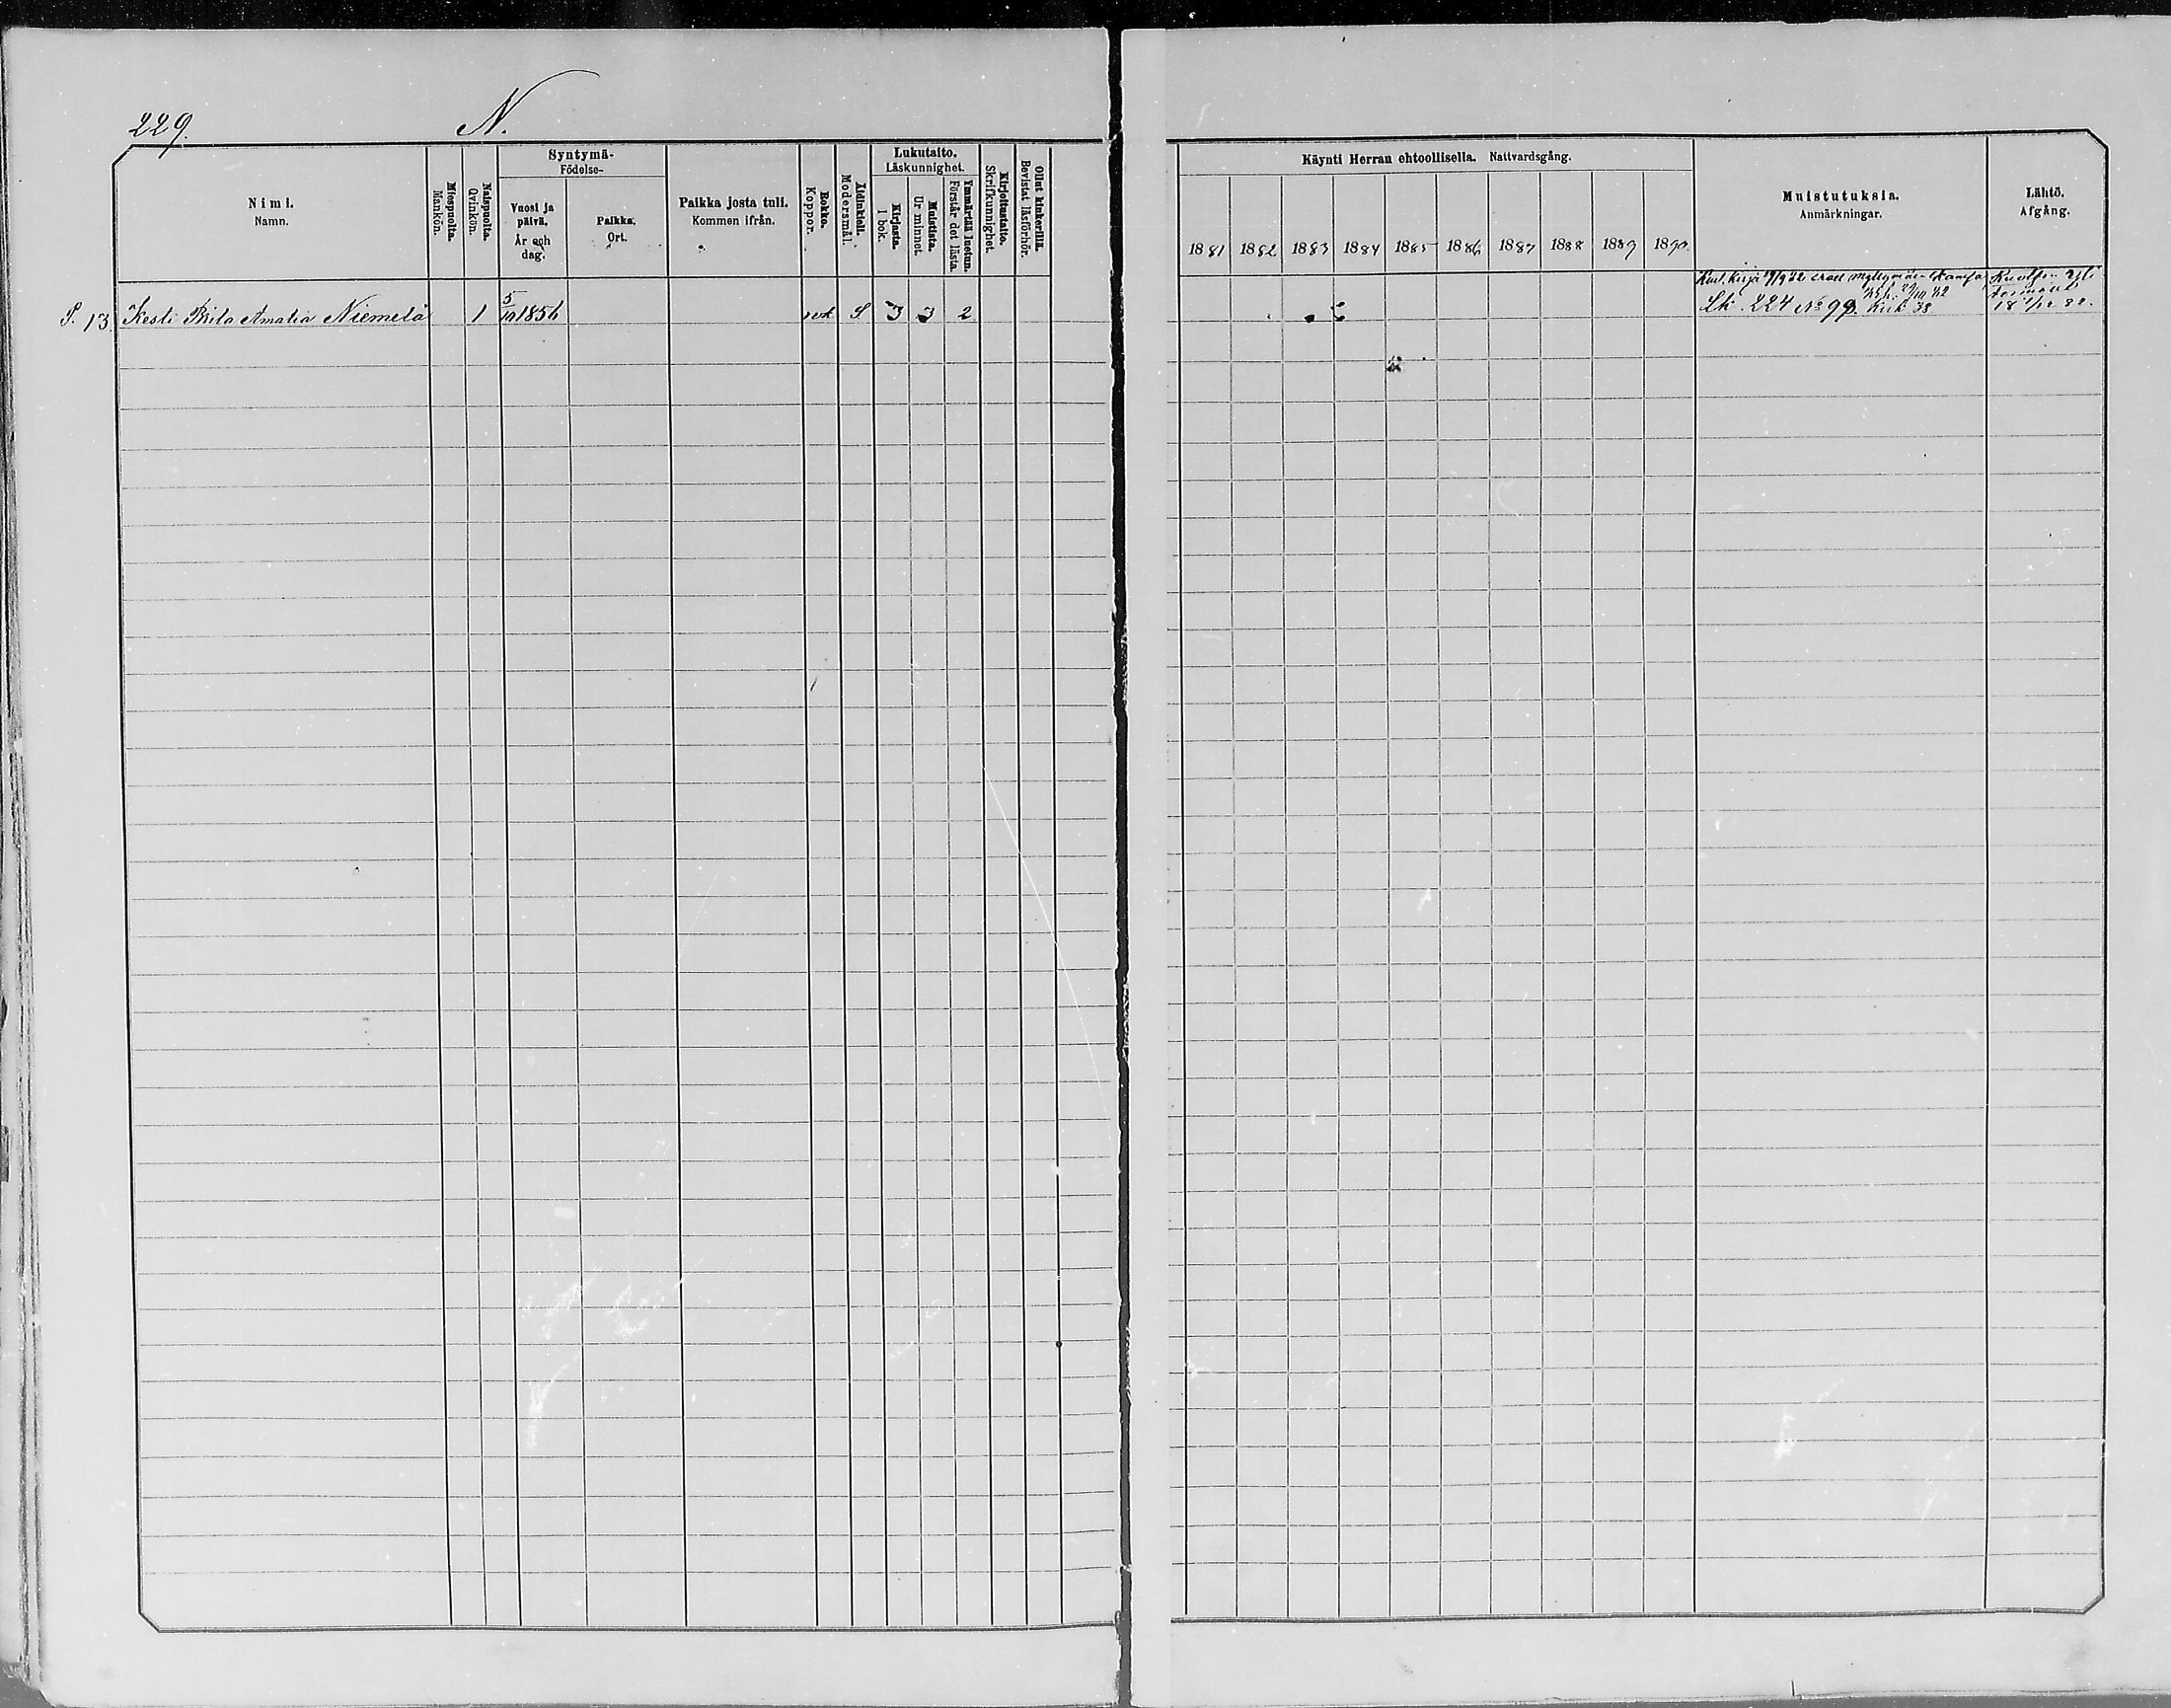 229.
N.
Nimi.
Namn.
Miespuolta.
Mankön.
Naispuolta.
Qvinkön.
Syntymä-
Födelse-
Vuosi ja
päivä.
År och
dag.
Paikka.
Ort.
Paikka josta tuli.
Kommen ifrån.
Rokko.
Koppor.
Äidinkieli.
Modersmål.
Lukutaito.
Läskunnighet.
Kirjasta.
I bok.
Muistista.
Ur minnet.
Ymmärtää luetun.
Förstår det lästa.
Kirjoitustaito.
Skrifkunnighet.
Ollut kinkerillä.
Bevistat läsförhör.
Käynti Herran ehtoollisella. Nattvardsgång.
1881 1882 1883 1884 1885 1886 1887 1888 1889 1890.
Muistutuksia.
Anmärkningar.
Lähtö.
Afgång.
P. 13 Kesti Rita Amalia Niemelä 1 5/10 1856 rok S 3 3 2
Lk. 224 No 99.